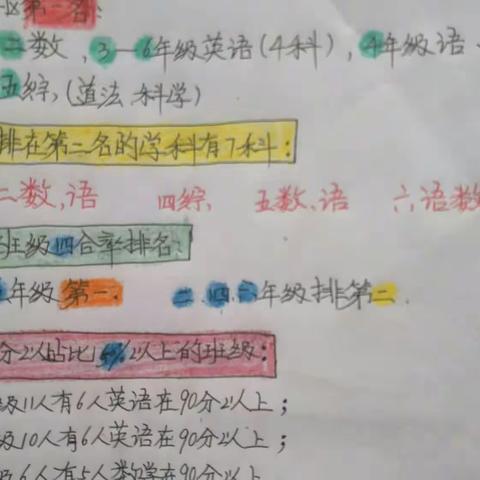 区第一名:
二数,3—6年级英语(4科),4年级语
五综,(道法 科学)
排在第二名的学科有7科:
二数,语 四综, 五数、语 六语数
班级四合率排名:
年级第一. 二.四.六年级排第二.
分以上占比1%以上的班级:
级11人有6人英语在90分以上;
级10人有6人英语在90分以上;
级6人有5人数学在90分以上